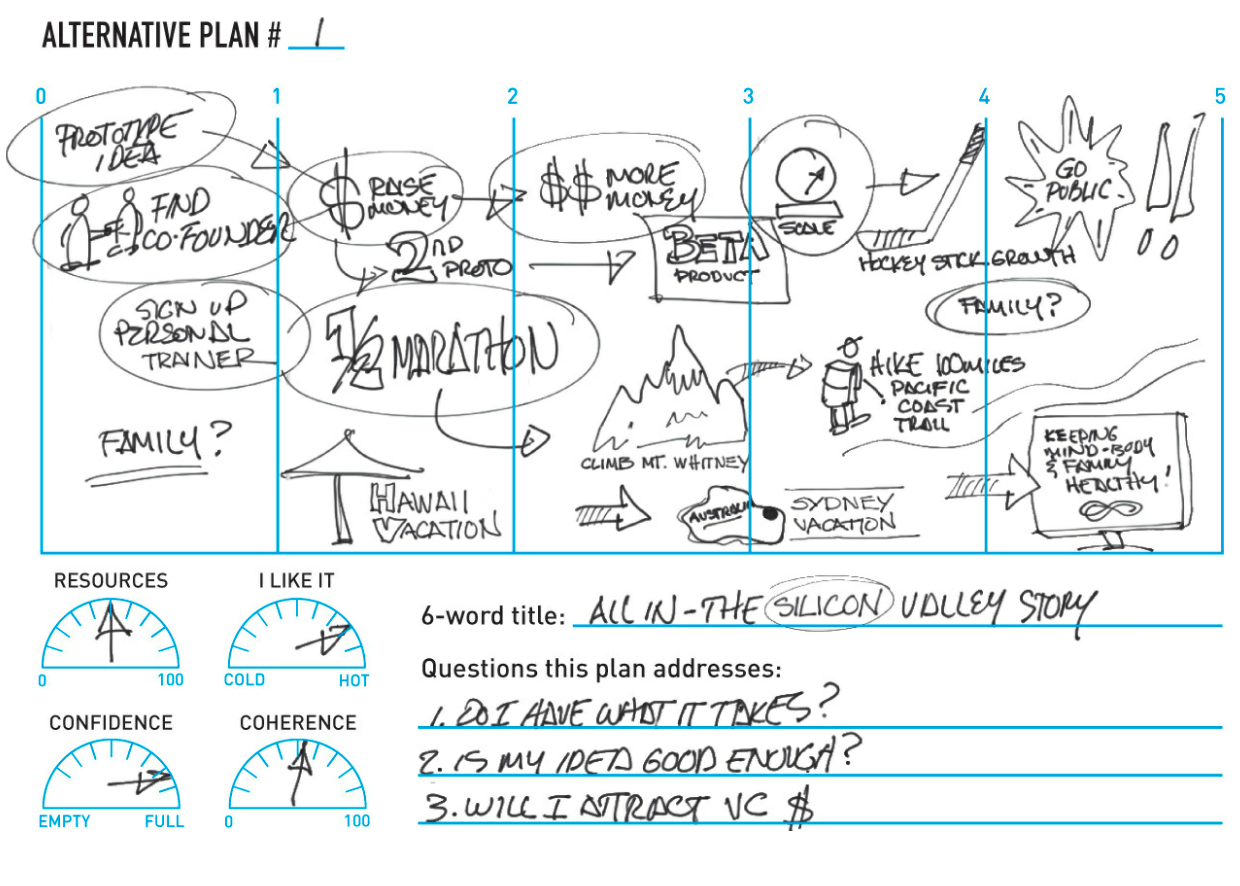 ALTERNATIVE PLAN # 1
0 1 2 3 4 5
PROTOTYPE
IDEA
FIND
CO-FOUNDER
SIGN UP
PERSONAL
TRAINER
FAMILY?
$ RAISE
MONEY
2ND
PROTO
1/2 MARATHON
HAWAII
VACATION
$$ MORE
MONEY
BETA
PRODUCT
CLIMB MT. WHITNEY
AUSTRALIA
SCALE
HOCKEY STICK GROWTH
HIKE 100 MILES
PACIFIC
COAST
TRAIL
SYDNEY
VACATION
GO
PUBLIC
!!
FAMILY?
KEEPING
MIND-BODY
& FAMILY
HEALTHY!
RESOURCES
0 100
I LIKE IT
COLD HOT
CONFIDENCE
EMPTY FULL
COHERENCE
0 100
6-word title: ALL IN-THE SILICON VALLEY STORY
Questions this plan addresses:
1. DO I HAVE WHAT IT TAKES?
2. IS MY IDEA GOOD ENOUGH?
3. WILL I ATTRACT VC $